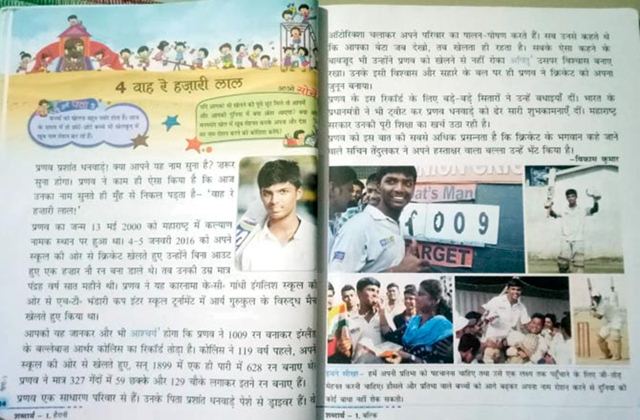 4 वाह रे हज़ारी लाल
प्रणव प्रशांत धनवाड़े! क्या आपने यह नाम सुना है? जरूर
सुना होगा। प्रणव ने काम ही ऐसा किया है कि आज
उनका नाम सुनते ही मुँह से निकल पड़ता है– 'वाह रे
हजारी लाल!'
प्रणव का जन्म 13 मई 2000 को महाराष्ट्र में कल्याण
नामक स्थान पर हुआ था। 4-5 जनवरी 2016 को अपने
स्कूल की ओर से क्रिकेट खेलते हुए उन्होंने बिना आउट
हुए एक हज़ार नौ रन बना डाले थे। तब उनकी उम्र मात्र
पंद्रह वर्ष सात महीने थी। प्रणव ने यह कारनामा के॰सी॰ गांधी इंगलिश स्कूल की
ओर से एच॰टी॰ भंडारी कप इंटर स्कूल टूर्नामेंट में आर्य गुरुकुल के विरुद्ध मैच
खेलते हुए किया था।
आपको यह जानकर और भी आश्चर्य होगा कि प्रणव ने 1009 रन बनाकर इंग्लैंड
के बल्लेबाज आर्थर कोलिंस का रिकॉर्ड तोड़ा है। कोलिंस ने 119 वर्ष पहले, अपने
स्कूल की ओर से खेलते हुए, सन् 1899 में एक ही पारी में 628 रन बनाए थे।
प्रणव ने मात्र 327 गेंदों में 59 छक्के और 129 चौके लगाकर इतने रन बनाए हैं।
प्रणव एक साधारण परिवार से हैं। उनके पिता प्रशांत धनवाड़े पेशे से ड्राइवर हैं। वे
शब्दार्थ - 1. हैरानी
ऑटोरिक्शा चलाकर अपने परिवार का पालन-पोषण करते हैं। सब उनसे कहते थे
कि आपका बेटा जब देखो, तब खेलता ही रहता है। सबके ऐसा कहने के
बावजूद भी उन्होंने प्रणव को खेलने से नहीं रोका उसपर विश्वास बनाए
रखा। उनके इसी विश्वास और सहारे के बल पर ही प्रणव ने क्रिकेट को अपना
जुनून बनाया।
प्रणव के इस रिकॉर्ड के लिए बड़े-बड़े सितारों ने उन्हें बधाइयाँ दीं। भारत के
प्रधानमंत्री ने भी ट्वीट कर प्रणव धनवाड़े को ढेर सारी शुभकामनाएँ दीं। महाराष्ट्र
सरकार उनकी पूरी शिक्षा का खर्च उठा रही है।
प्रणव को इस बात की सबसे अधिक प्रसन्नता है कि क्रिकेट के भगवान कहे जाने
वाले सचिन तेंदुलकर ने अपने हस्ताक्षर वाला बल्ला उन्हें भेंट किया है।
–विकास कुमार
at's Man
1009
ARGET
हमने सीखा- हमें अपनी प्रतिभा को पहचानना चाहिए तथा उसे एक लक्ष्य तक पहुँचाने के लिए जी-तोड़
मेहनत करनी चाहिए। हौसले और प्रतिभा वाले बच्चों को आगे बढ़कर अपना नाम रोशन करने से दुनिया की
कोई बाधा नहीं रोक सकती।
शब्दार्थ - 1. बल्कि